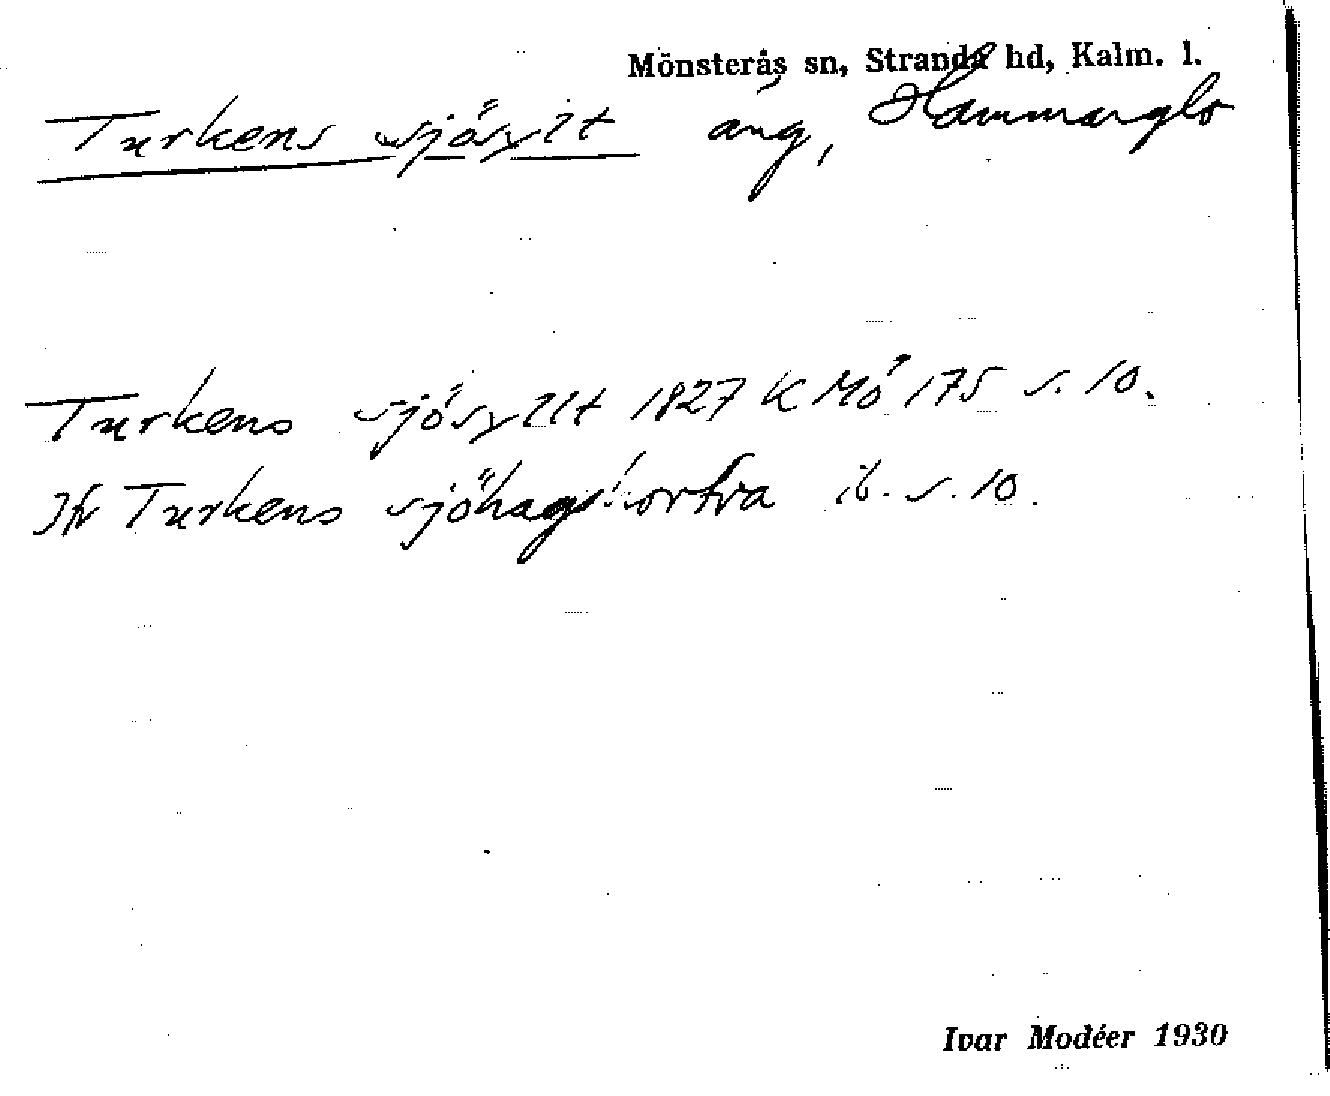 Mönsterås sn, Stranda hd, Kalm. l.
Turkens sjösylt äng, Hammarglo
Turkens sjösyllt 1827 K Mö 175 s. 10.
Jfr Turkens sjöhagshorfva ib. s. 10.
Ivar Modéer 1930